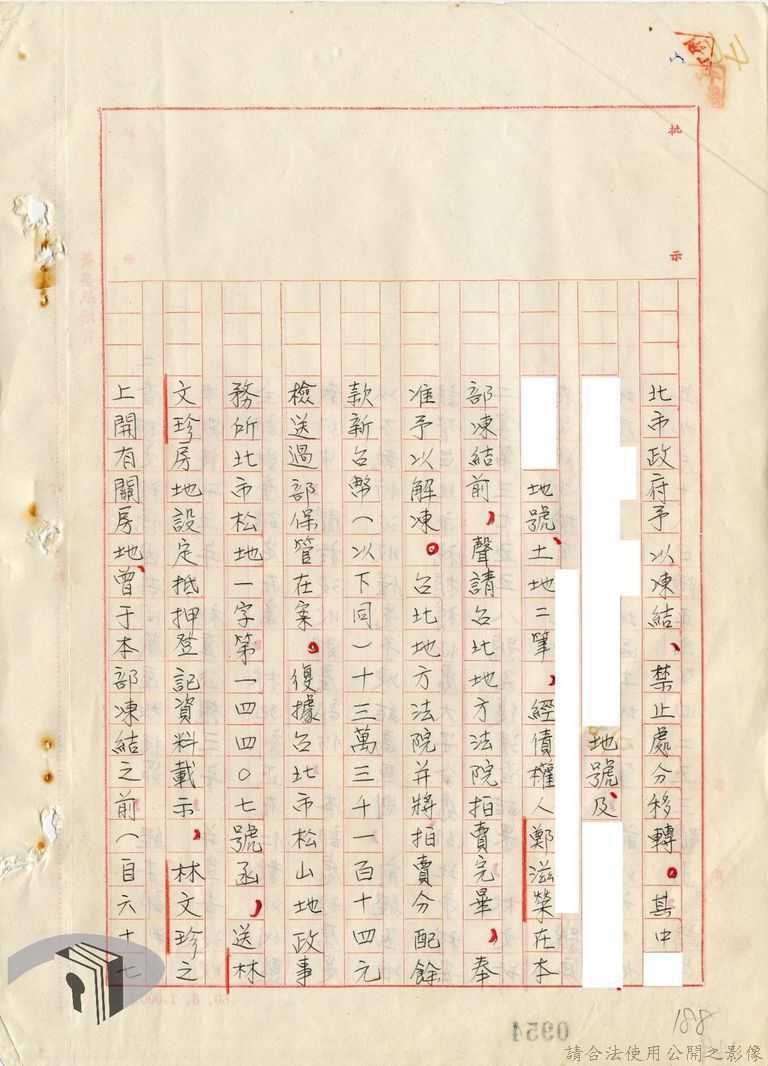 批示
北市政府予以凍結、禁止處分移轉。其中
地號、及
地號、土地二筆，經債權人鄭滋榮在本
部凍結前，聲請台北地方法院拍賣完畢，奉
准予以解凍。台北地方法院并將拍賣分配餘
款新台幣（以下同）十三萬三千一百十四元
檢送過部保管在案。復據台北市松山地政事
務所北市松地一字第一四四０七號函，送林
文珍房地設定抵押登記資料載示，林文珍之
上開有關房地、曾于本部凍結之前（自六十七
188
0954
請合法使用公開之影像